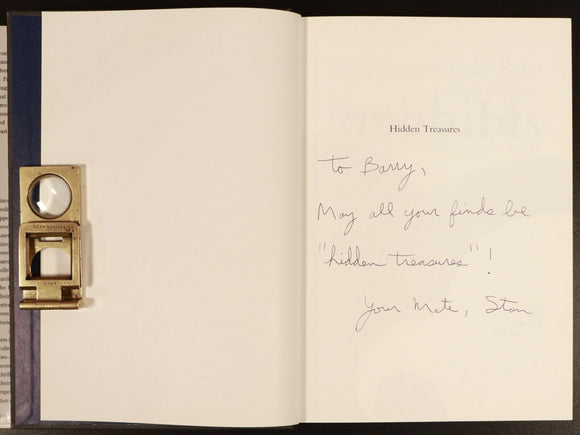 Hidden Treasures
To Barry,
May all your finds be
"hidden treasures"!
Your Mate, Stan